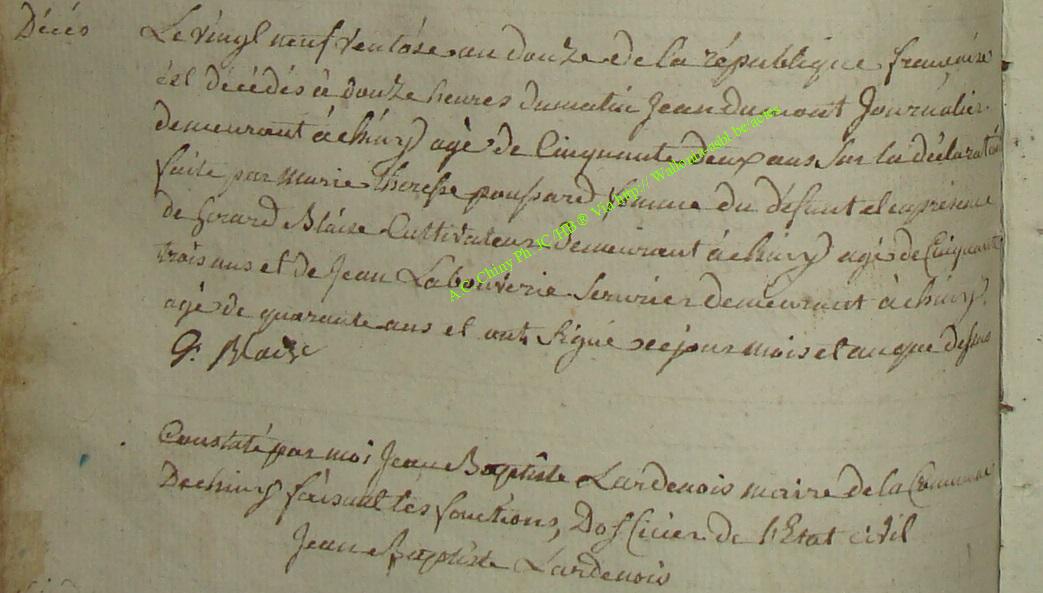 Décés
Le vingt neuf ventôse an douze de la république francaise
est décédés à douze heures du matin Jean dumont Journalier
demeurant à chiny agé de Cinquante deux ans sur la déclaration
faite par marie therese poussard femme du défunt et en présence
de Girard Blaise Cultivateur demeurant à chiny agé de Cinquante
trois ans et de Jean Labouverie Serurier demeurant à chiny
agé de quarante ans et ont signé les jour mois et an que dessus
G. Blaise
Constaté par moi Jean Baptiste Lardenois maire de la Commune
De chiny faisant les fonctions, D'officier de l'Etat civil
Jean Baptiste Lardenois
A C Chiny Ph. JC /HB ® Via http:// Wallonia-asbl.be/actes